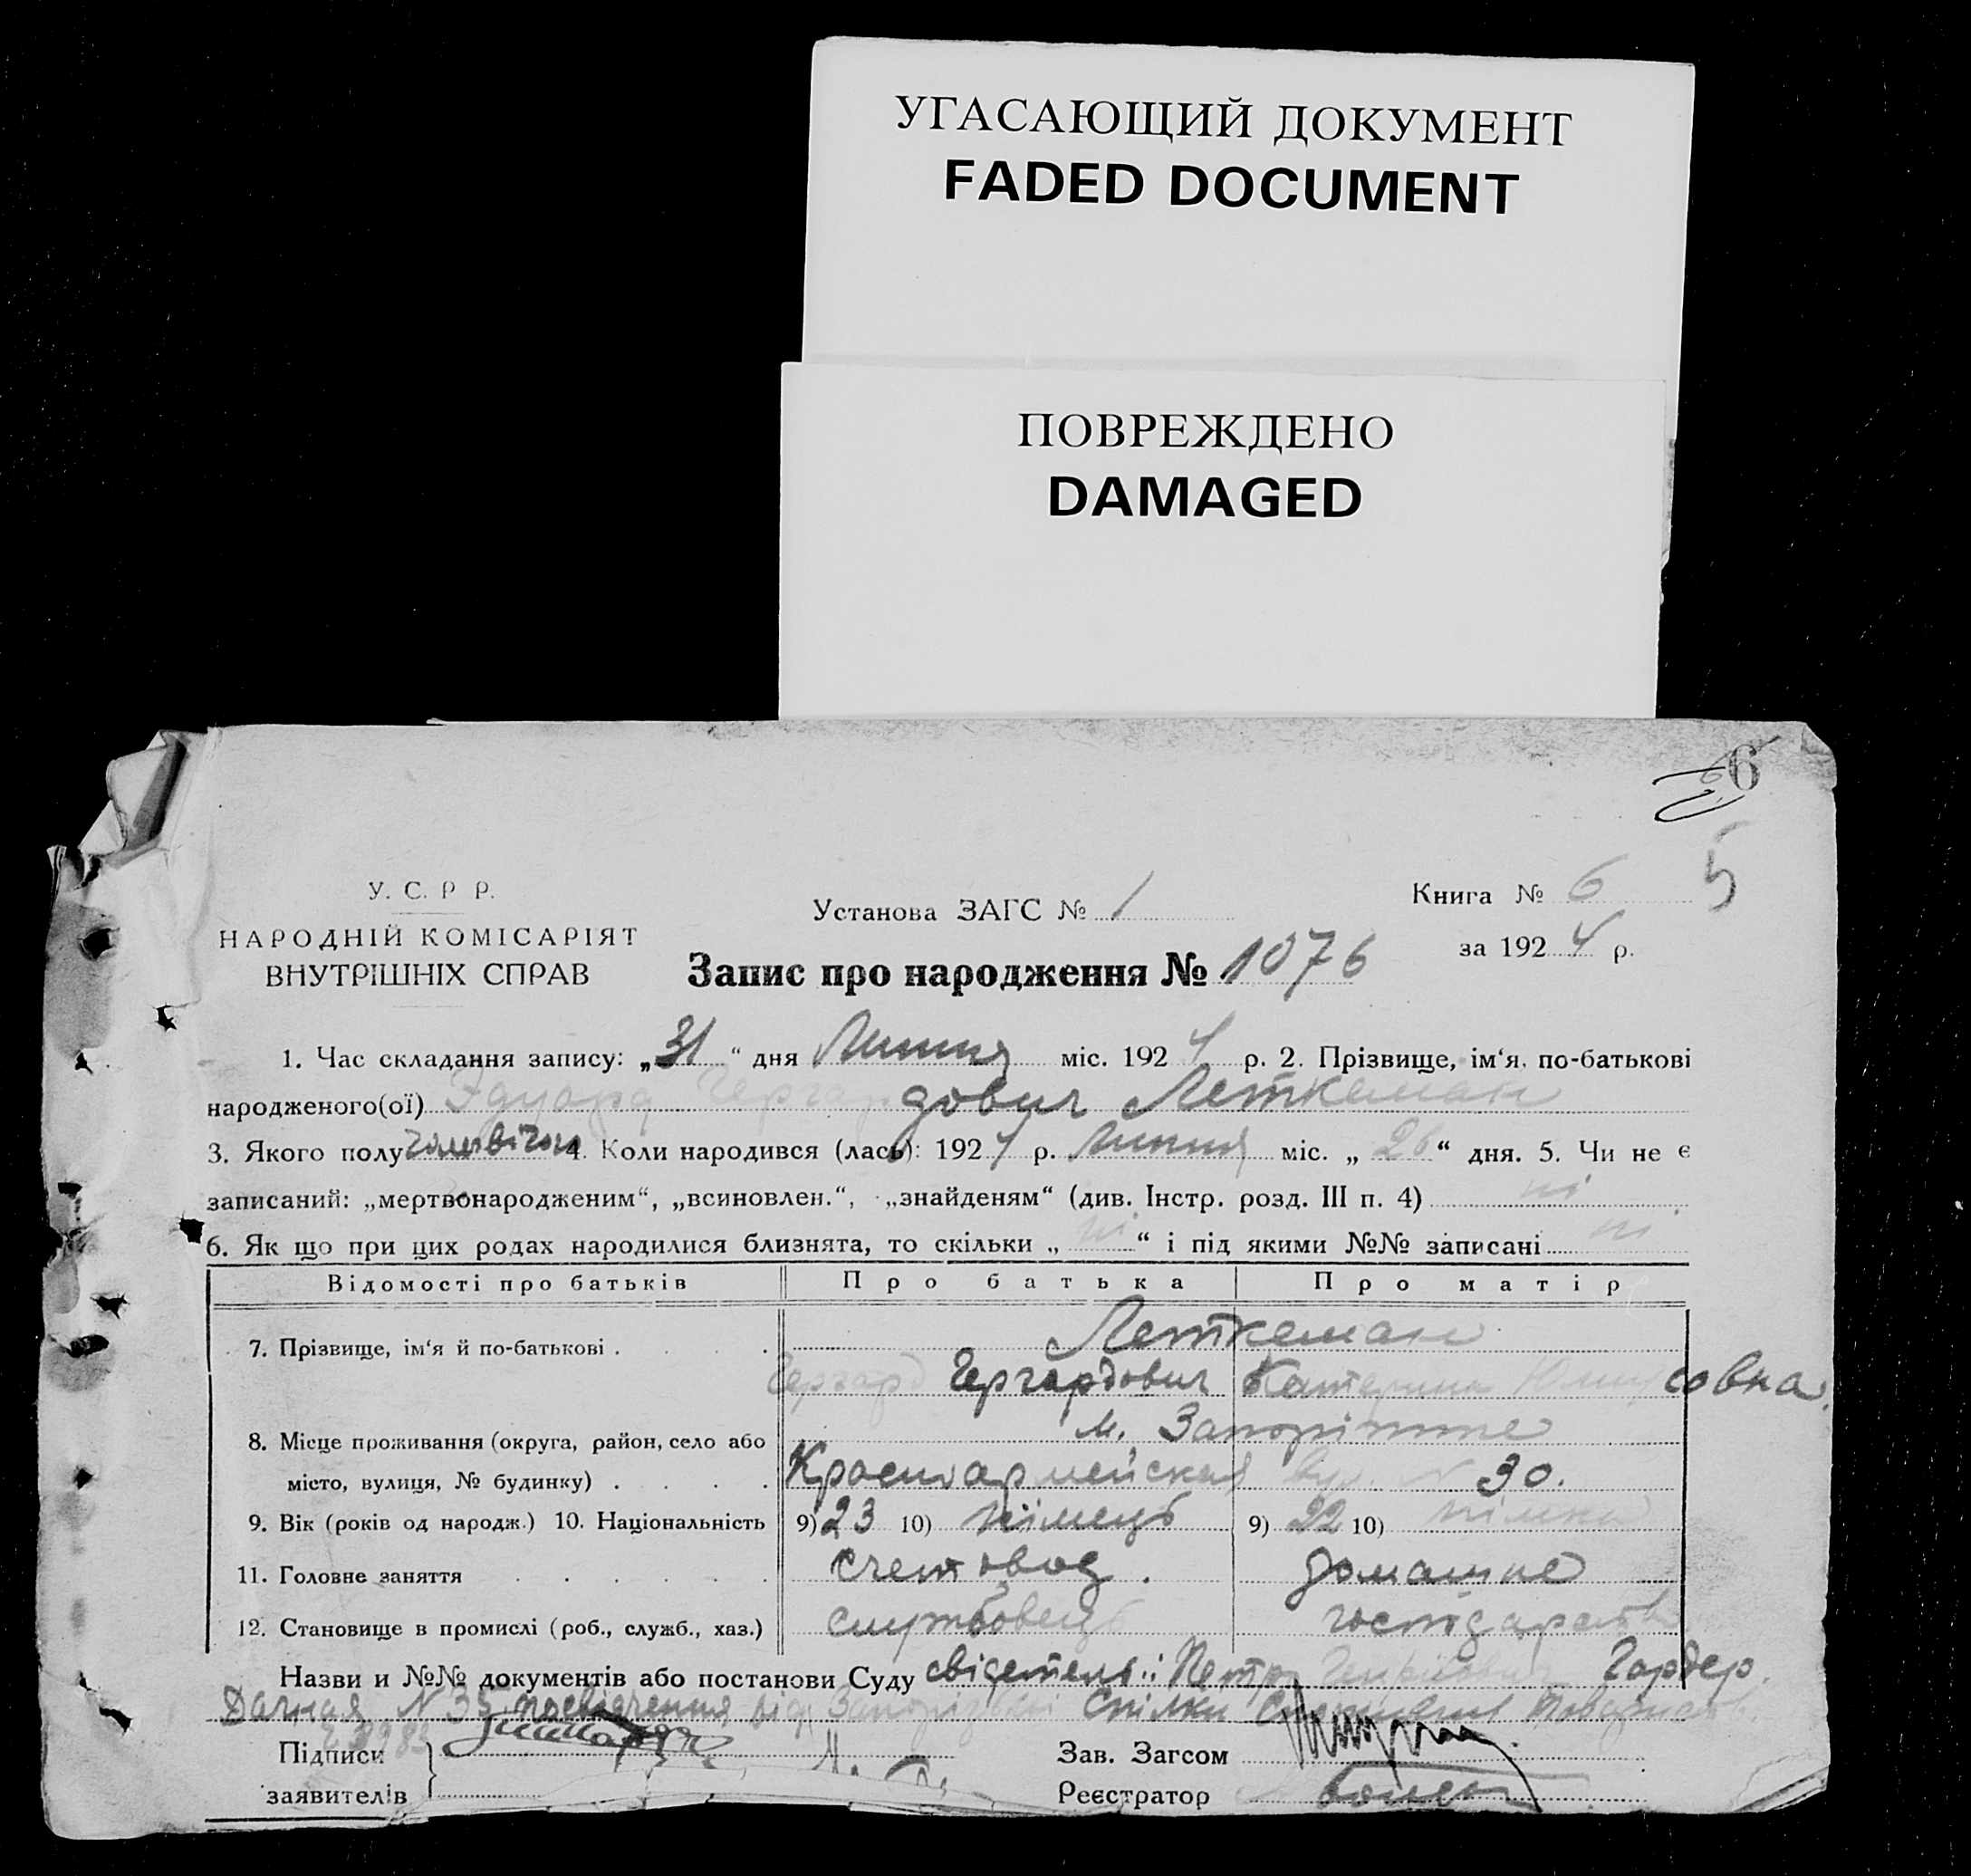 УГАСАЮЩИЙ ДОКУМЕНТ
FADED DOCUMENT
ПОВРЕЖДЕНО
DAMAGED
6
5
У. С. Р Р.
НАРОДНІЙ КОМІСАРІЯТ
ВНУТРІШНІХ СПРАВ
Установа ЗАГС № 1
Книга № 6
за 1924 р.
Запис про народження № 1076
1. Час складання запису: „31“ дня Липня міс. 1924 р. 2. Прізвище, ім‘я, по-батькові
народженого(ої) Эдуард Гергардович Леткеман
3. Якого полу чоловічої 4. Коли народився (лась): 1924 р. Липня міс. „26“ дня. 5. Чи не є
записаний: „мертвонародженим“, „всиновлен.“, „знайденям“ (див. Інстр. розд. III п. 4) ні
6. Як що при цих родах народилися близнята, то скільки „ні“ і під якими №№ записані ні
Відомості про батьків Про батька Про матір
7. Прізвище, ім‘я й по-батькові . Леткеман
Гергард Гергардович Катерина совна
8. Місце проживання (округа, район, село або м. Запоріжжє
місто, вулиця, № будинку) . Красноармейская вул. N 30.
9. Вік (років од народж.) 10. Національність 9) 23 10) німець 9) 22 10) німка
11. Головне заняття счетовод. домашнє
12. Становище в промислі (роб., служб., хаз.) службовець господарств
Назви и №№ документів або постанови Суду свідетель: Петр Гардер.
Дачная N 35 посвідчення від Спілки
Підписи
заявителів
Зав. Загсом
Реєстратор